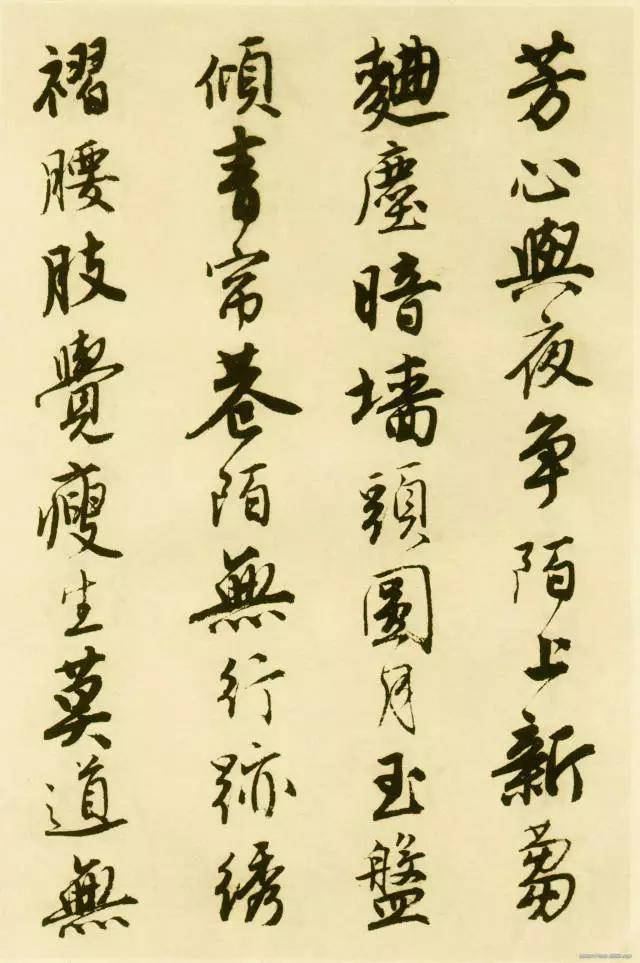 芳心與夜争陌上新蒭
麯塵暗墻頭圓月玉盤
傾青帘巷陌無行跡绣
褶腰肢覺瘦生莫道無